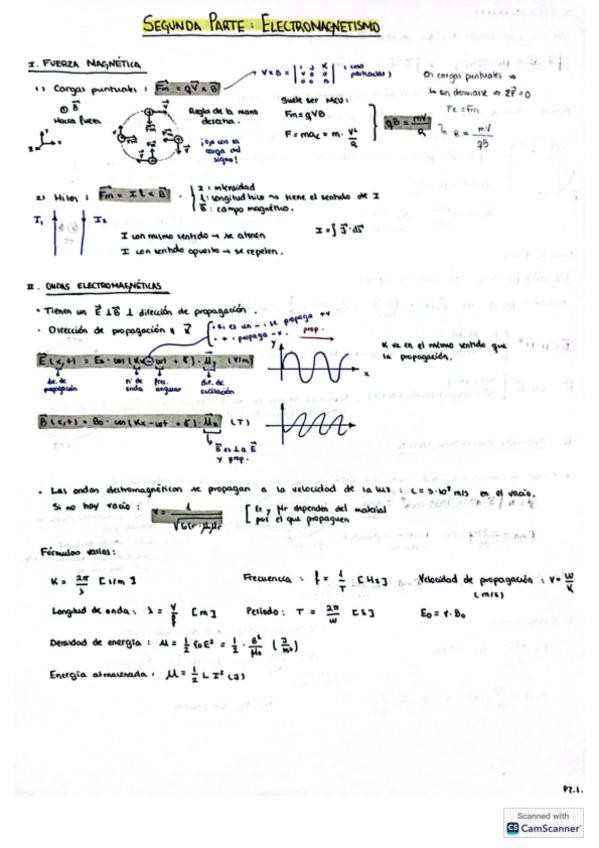 SEGUNDA PARTE: ELECTROMAGNETISMO
I. FUERZA MAGNÉTICA
1) Cargas puntuales: Fm = q V x B
V x B = | i j k
(caso particular)
En cargas puntuales →
sin desviarse ⇒ ΣF = 0
Fe = Fm
⊙ B
Hacia fuera
Regla de la mano derecha.
¡Ojo con la carga del signo!
Suele ser MCU:
Fm = qVB
F = m ac = m · V²/R
qB = mV/R
R = mV/qB
2) Hilos: Fm = I l x B
I: intensidad
l: longitud hilo → tiene el sentido de I
B: campo magnético.
I₁ I₂
I con mismo sentido → se atraen
I con sentido opuesto → se repelen.
I = ∫ J · dS
II. ONDAS ELECTROMAGNÉTICAS
• Tienen un E ⊥ B ⊥ dirección de propagación.
• Dirección de propagación
• Si es un - : se propaga +x
• + : propaga -x.
prop.
K va en el mismo sentido que la propagación.
E(x,t) = E₀ · cos(Kx - wt + δ) · (V/m)
dir. de propagación
nº de onda
frec. angular
dir. de oscilación
y
x
B(x,t) = B₀ · cos(Kx - wt + δ) · (T)
B es ⊥ a E y prop.
• Las ondas electromagnéticas se propagan a la velocidad de la luz: c = 3·10⁸ m/s en el vacío.
Si no hay vacío: v = 1/√(ε₀εr · μ₀μr)
[ εr y μr dependen del material por el que propaguen
Fórmulas varias:
K = 2π/λ [1/m]
Frecuencia: f = 1/T [Hz]
Velocidad de propagación: v = w/K (m/s)
Longitud de onda: λ = v/f [m]
Periodo: T = 2π/w [s]
E₀ = v · B₀
Densidad de energía: μ = 1/2 ε₀E² = 1/2 · B²/μ₀ (J/m³)
Energía almacenada: μ = 1/2 L I² (J)
P2.1.
Scanned with
CS CamScanner